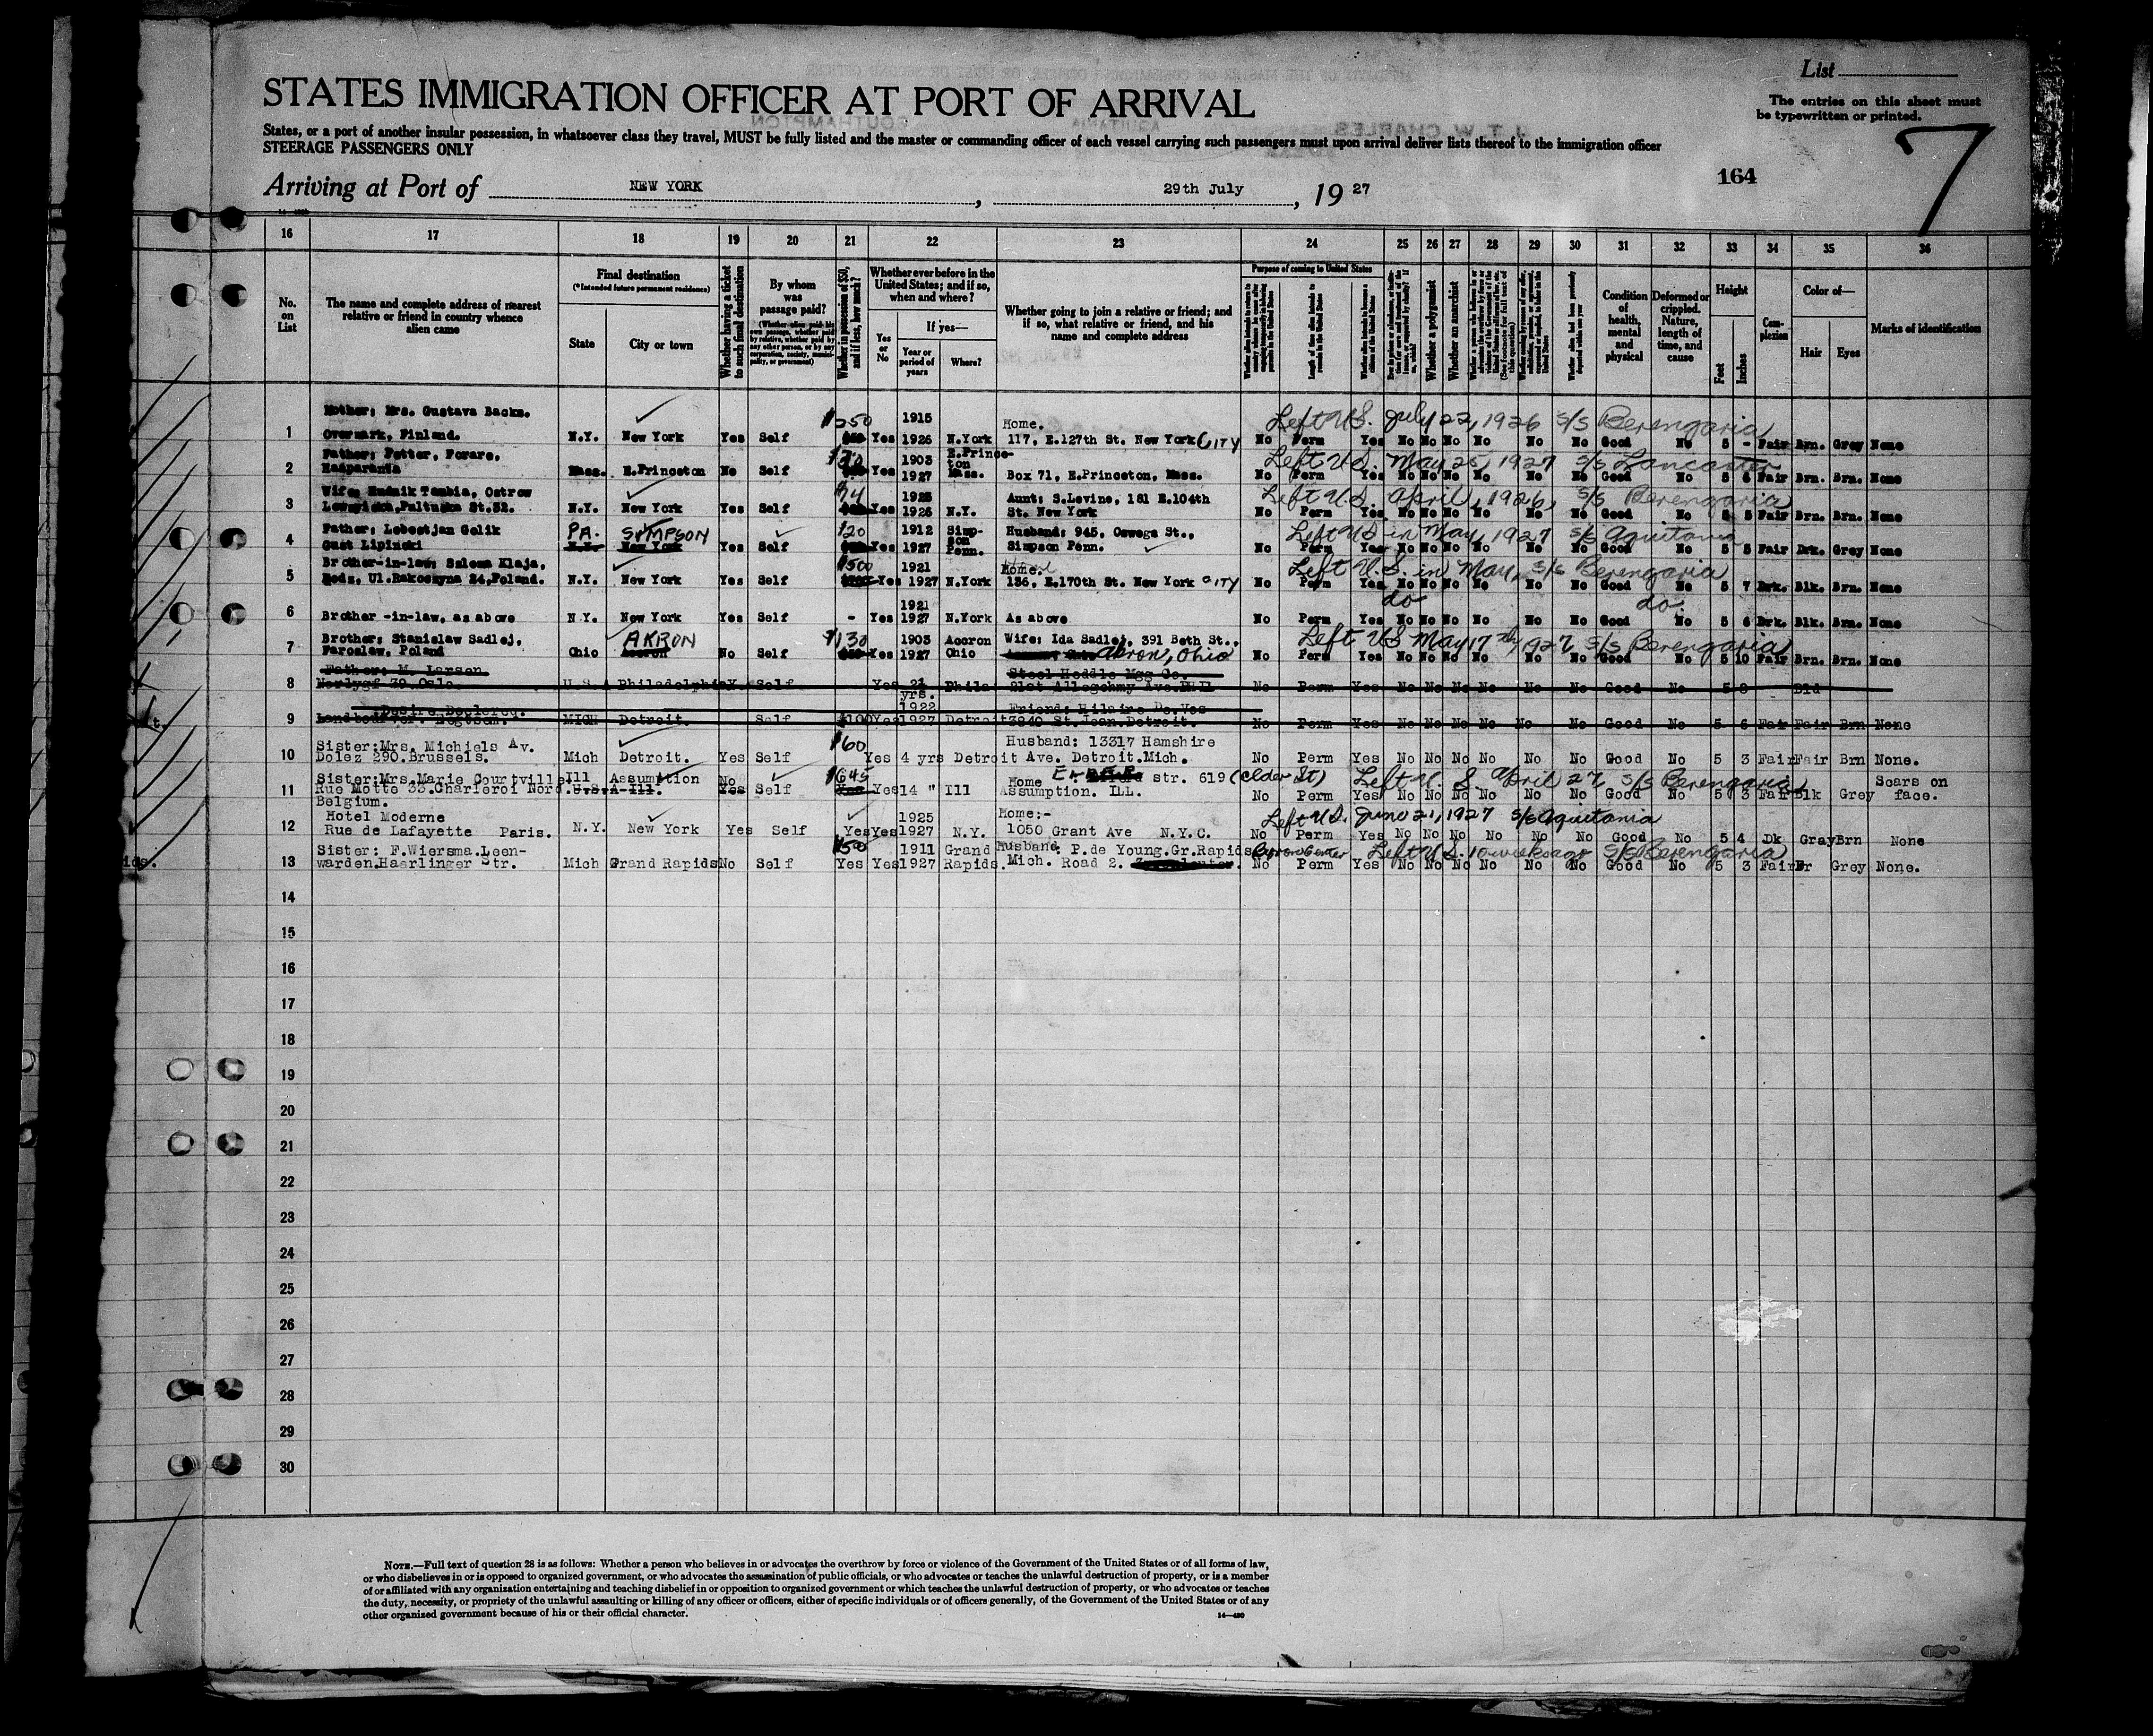 List
The entries on this sheet must
be typewritten or printed.
STATES IMMIGRATION OFFICER AT PORT OF ARRIVAL
States, or a port of another insular possession, in whatsoever class they travel, MUST be fully listed and the master or commanding officer of each vessel carrying such passengers must upon arrival deliver lists thereof to the immigration officer
STEERAGE PASSENGERS ONLY
7
164
Arriving at Port of NEW YORK, 29th July, 19 27
16 17 18 19 20 21 22 23 24 25 26 27 28 29 30 31 32 33 34 35 36
No. on List
The name and complete address of nearest relative or friend in country whence alien came
Final destination
(*Intended future permanent residence)
State
City or town
Whether having a ticket to such final destination
By whom was passage paid?
(Whether alien paid his own passage, whether paid by relative, whether paid by any other person, or by any corporation, society, municipality, or government)
Whether in possession of $50, and if less, how much?
Whether ever before in the United States; and if so, when and where?
Yes or No
If yes—
Year or period of years
Where?
Whether going to join a relative or friend; and if so, what relative or friend, and his name and complete address
Purpose of coming to United States
Length of time alien intends to remain in the United States
Whether a polygamist
Whether an anarchist
Condition of health, mental and physical
Deformed or crippled. Nature, length of time, and cause
Height
Feet
Inches
Complexion
Color of—
Hair
Eyes
Marks of identification
Mother: Mrs. Gustava Backs. $250 1915 Home. Left U.S. July 22, 1926 S/S Berengaria
1 Overmark, Finland. N.Y. New York Yes Self Yes 1926 N.York 117, E.127th St. New York CITY No Perm Yes No No No No No No Good No 5 - Fair Brn. Grey None
Father: Petter, Forare, 1903 E.Prince- Left U.S. May 25, 1927 S/S Lancaster
2 Mass. E.Princeton No Self Yes 1927 ton Mass. Box 71, E.Princeton, Mass. No Perm Yes No No No No No No Good No 5 6 Fair Brn. Brn. None
$74 Aunt: S.Levine, 181 E.104th Left U.S. April, 1926, S/S Berengaria
3 St.32. N.Y. New York Yes Self Yes 1926 N.Y. St. New York No Perm Yes No No No No No No Good No 5 5 Fair Brn. Brn. None
Father: Lebestjan Golik PA. SIMPSON 120 1912 Simp- Husband: 945, Oswego St., Left U.S. in May, 1927 S/S Aquitania
4 Gast Lipinski N.Y. New York Yes Self Yes 1927 son Penn. Simpson Penn. No Perm Yes No No No No No No Good No 5 5 Fair Drk. Grey None
Brother-in-law: Szlema Klaja, $500 1921 Home. Left U.S. in May, S/S Berengaria
5 24, Poland. N.Y. New York Yes Self Yes 1927 N.York 136, E.170th St. New York CITY No Perm Yes No No No No No No Good No 5 7 Drk. Blk. Brn. None
1921 do do.
6 Brother -in-law, as above N.Y. New York Yes Self - Yes 1927 N.York As above No Perm Yes No No No No No No Good No 5 6 Drk. Blk. Brn. None
Brother: Stanislaw Sadlej, AKRON $130 1903 Accron Wife: Ida Sadlej, 391 Beth St., Left US May 17th, 1927 S/S Berengaria
7 Yaroslaw, Poland Ohio Accron No Self Yes 1927 Ohio Akron, Ohio No Perm Yes No No No No No No Good No 5 10 Fair Brn. Brn. None
Father: M. Larsen Steel Heddle Mgg Co.
8 39 Oslo. U.S.A Philadelphia Y. Self Yes 21 yrs. Phila 21st Alleghmy Ave. No Perm Yes No No No No No No Good No 5 8 Bld
Desire Declercq. 1922 Friend: Hilaire De.Vos
9 MICH Detroit. Self $100 Yes 1927 Detroit 3940 St.Jean.Detroit. No Perm Yes No No No No No No Good No 5 6 Fair Fair Brn None
Sister:Mrs. Michiels Av. $60 Husband: 13317 Hamshire
10 Dolez 290.Brussels. Mich Detroit. Yes Self Yes 4 yrs Detroit Ave. Detroit.Mich. No Perm Yes No No No No No No Good No 5 3 Fair Fair Brn None.
Sister:Mrs.Marie Courtville Ill Assumption No $645 Home str. 619 (Elder St) Left U.S. April 27 S/S Berengaria Scars on
11 Rue Motte 33.Charleroi Nord. U.S.A-Ill. Yes Self Yes Yes 14 " Ill Assumption. ILL. No Perm Yes No No No No No No Good No 5 3 Fair Blk Grey face.
Belgium.
Hotel Moderne 1925 Home:- Left U.S. June 21, 1927 S/S Aquitania
12 Rue de Lafayette Paris. N.Y. New York Yes Self Yes Yes 1927 N.Y. 1050 Grant Ave N.Y.C. No Perm Yes No No No No No No Good No 5 4 Dk Gray Brn None
Sister: F.Wiersma.Leen- $50 1911 Grand Husband: P.de Young.Gr.Rapids Left U.S. 10 weeks ago S/S Berengaria
13 warden.Haerlinger Str. Mich Grand Rapids No Self Yes Yes 1927 Rapids. Mich. Road 2. No Perm Yes No No No No No No Good No 5 3 Fair Br Grey None.
14
15
16
17
18
19
20
21
22
23
24
25
26
27
28
29
30
NOTE.—Full text of question 28 is as follows: Whether a person who believes in or advocates the overthrow by force or violence of the Government of the United States or of all forms of law,
or who disbelieves in or is opposed to organized government, or who advocates the assassination of public officials, or who advocates or teaches the unlawful destruction of property, or is a member
of or affiliated with any organization entertaining and teaching disbelief in or opposition to organized government or which teaches the unlawful destruction of property, or who advocates or teaches
the duty, necessity, or propriety of the unlawful assaulting or killing of any officer or officers, either of specific individuals or of officers generally, of the Government of the United States or of any
other organized government because of his or their official character.
14—480